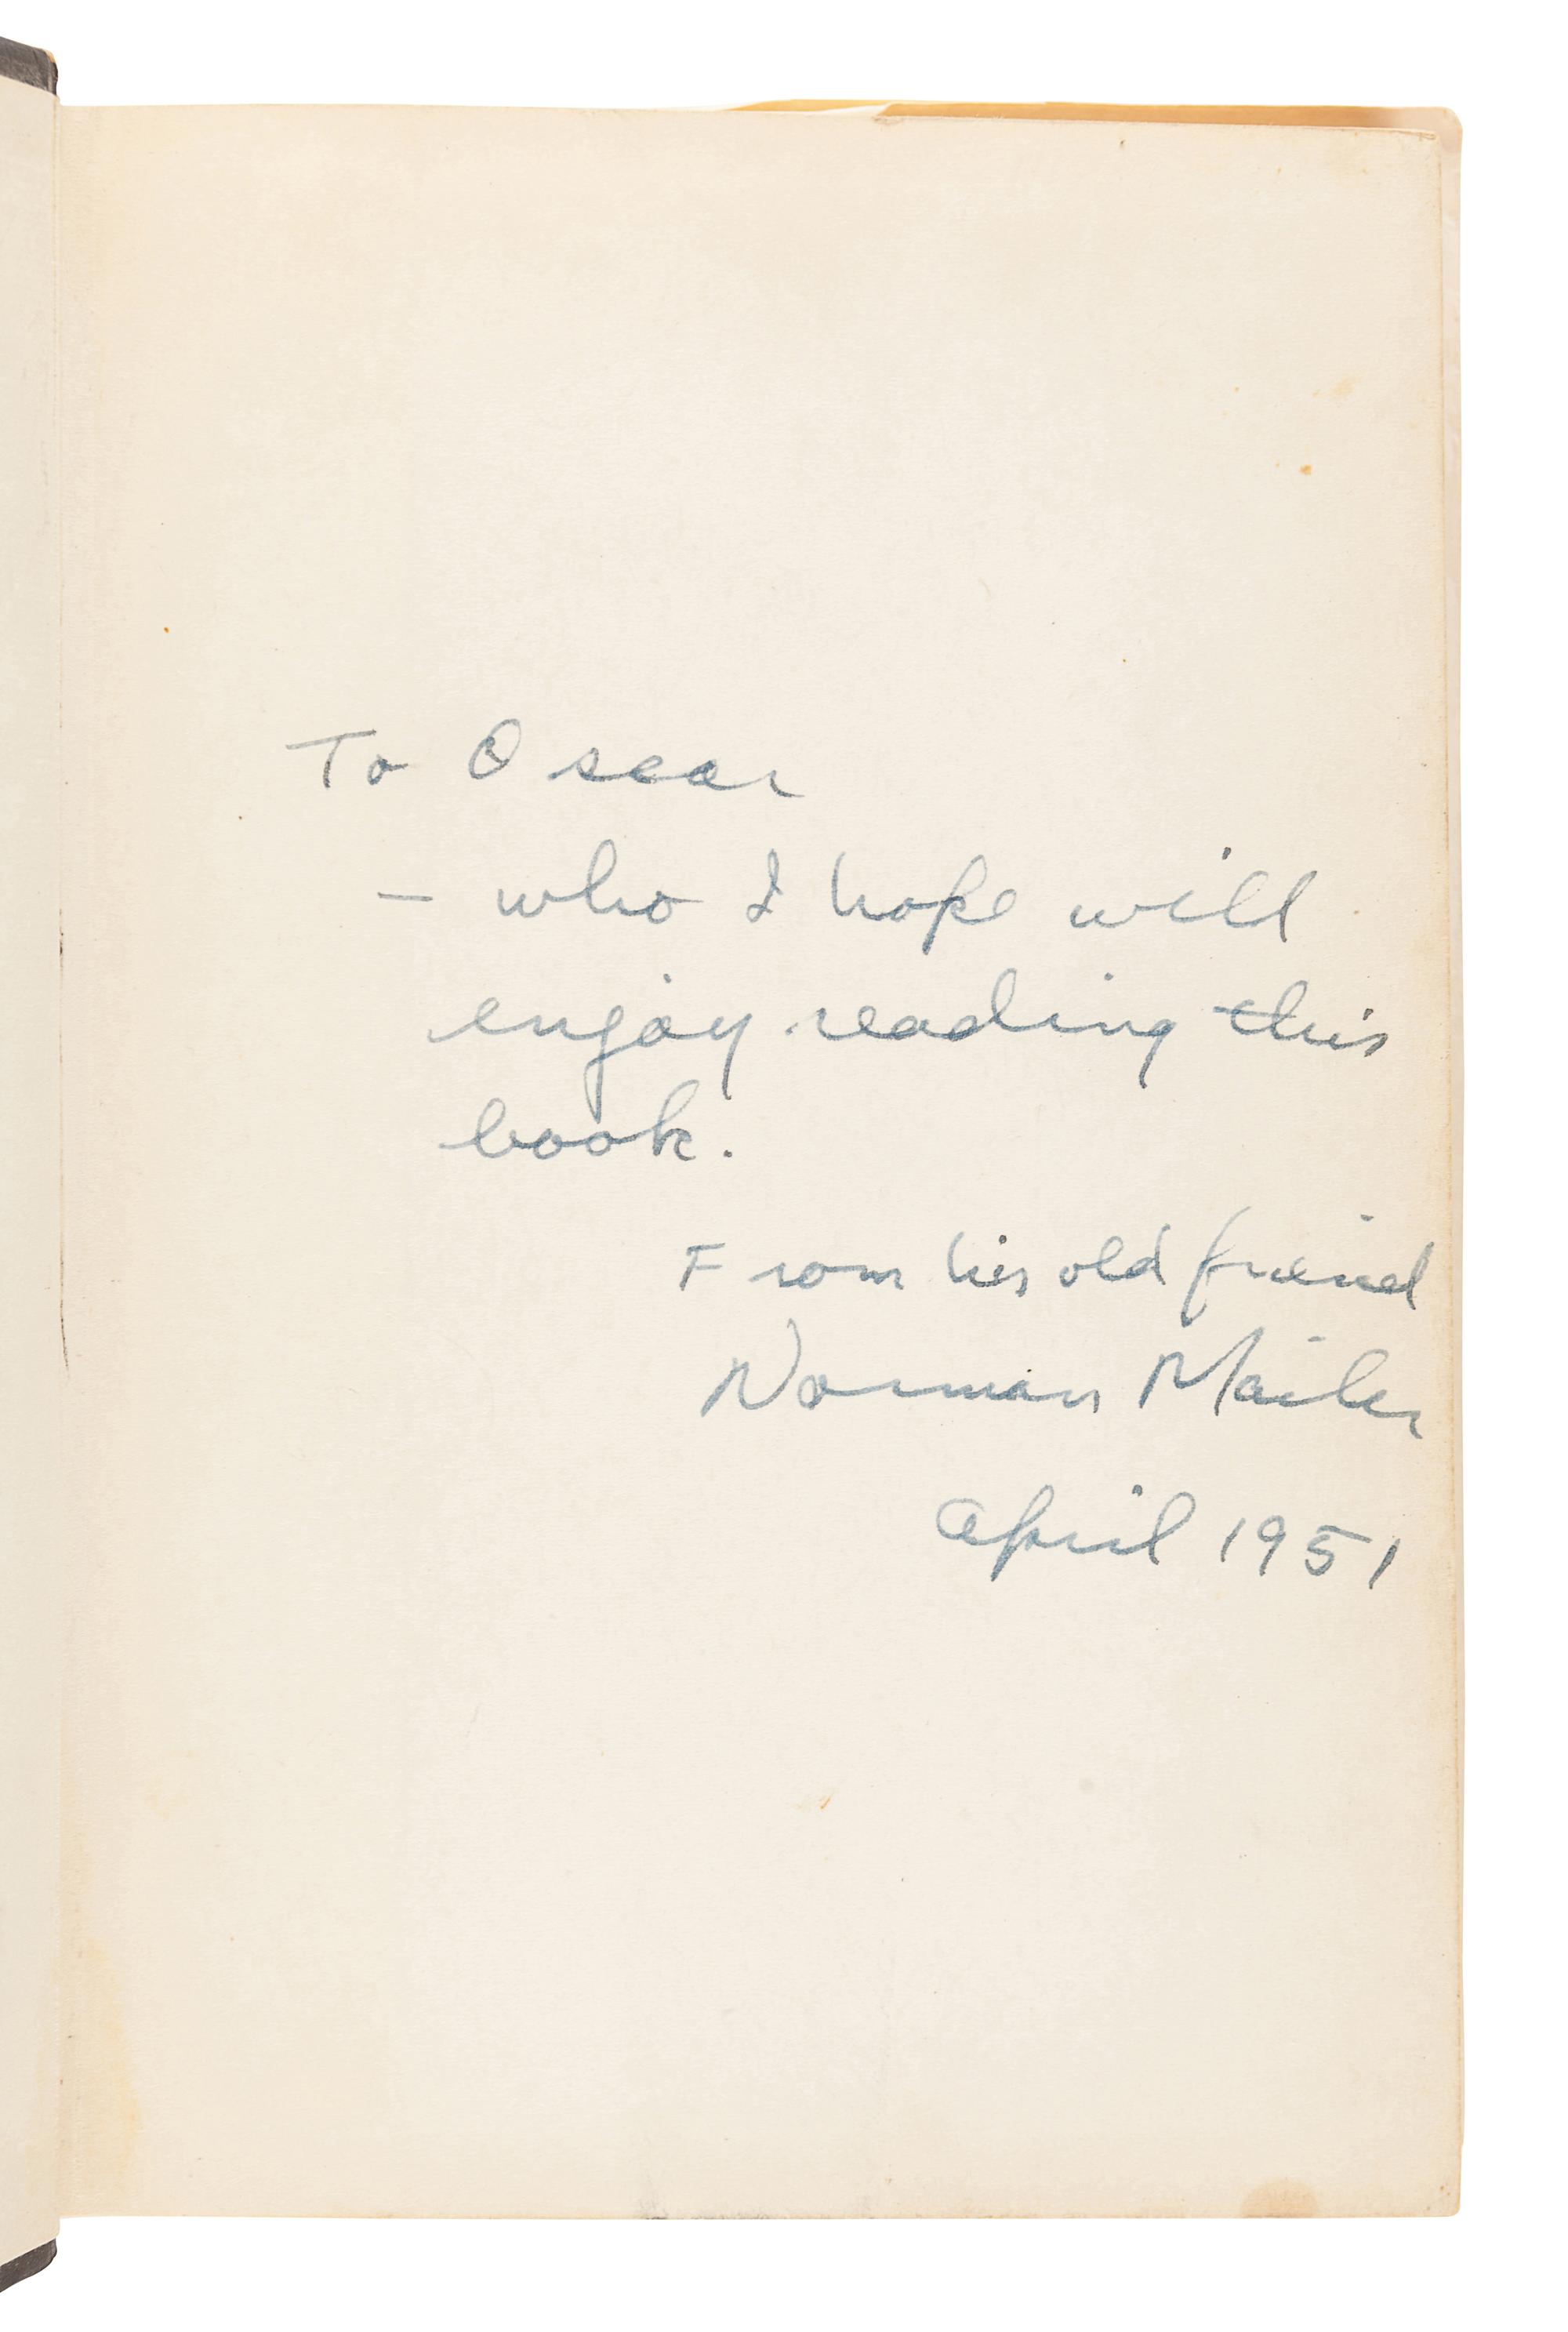 To Oscar
— who I hope will
enjoy reading this
book.
From his old friend
Norman Mailer
April 1951